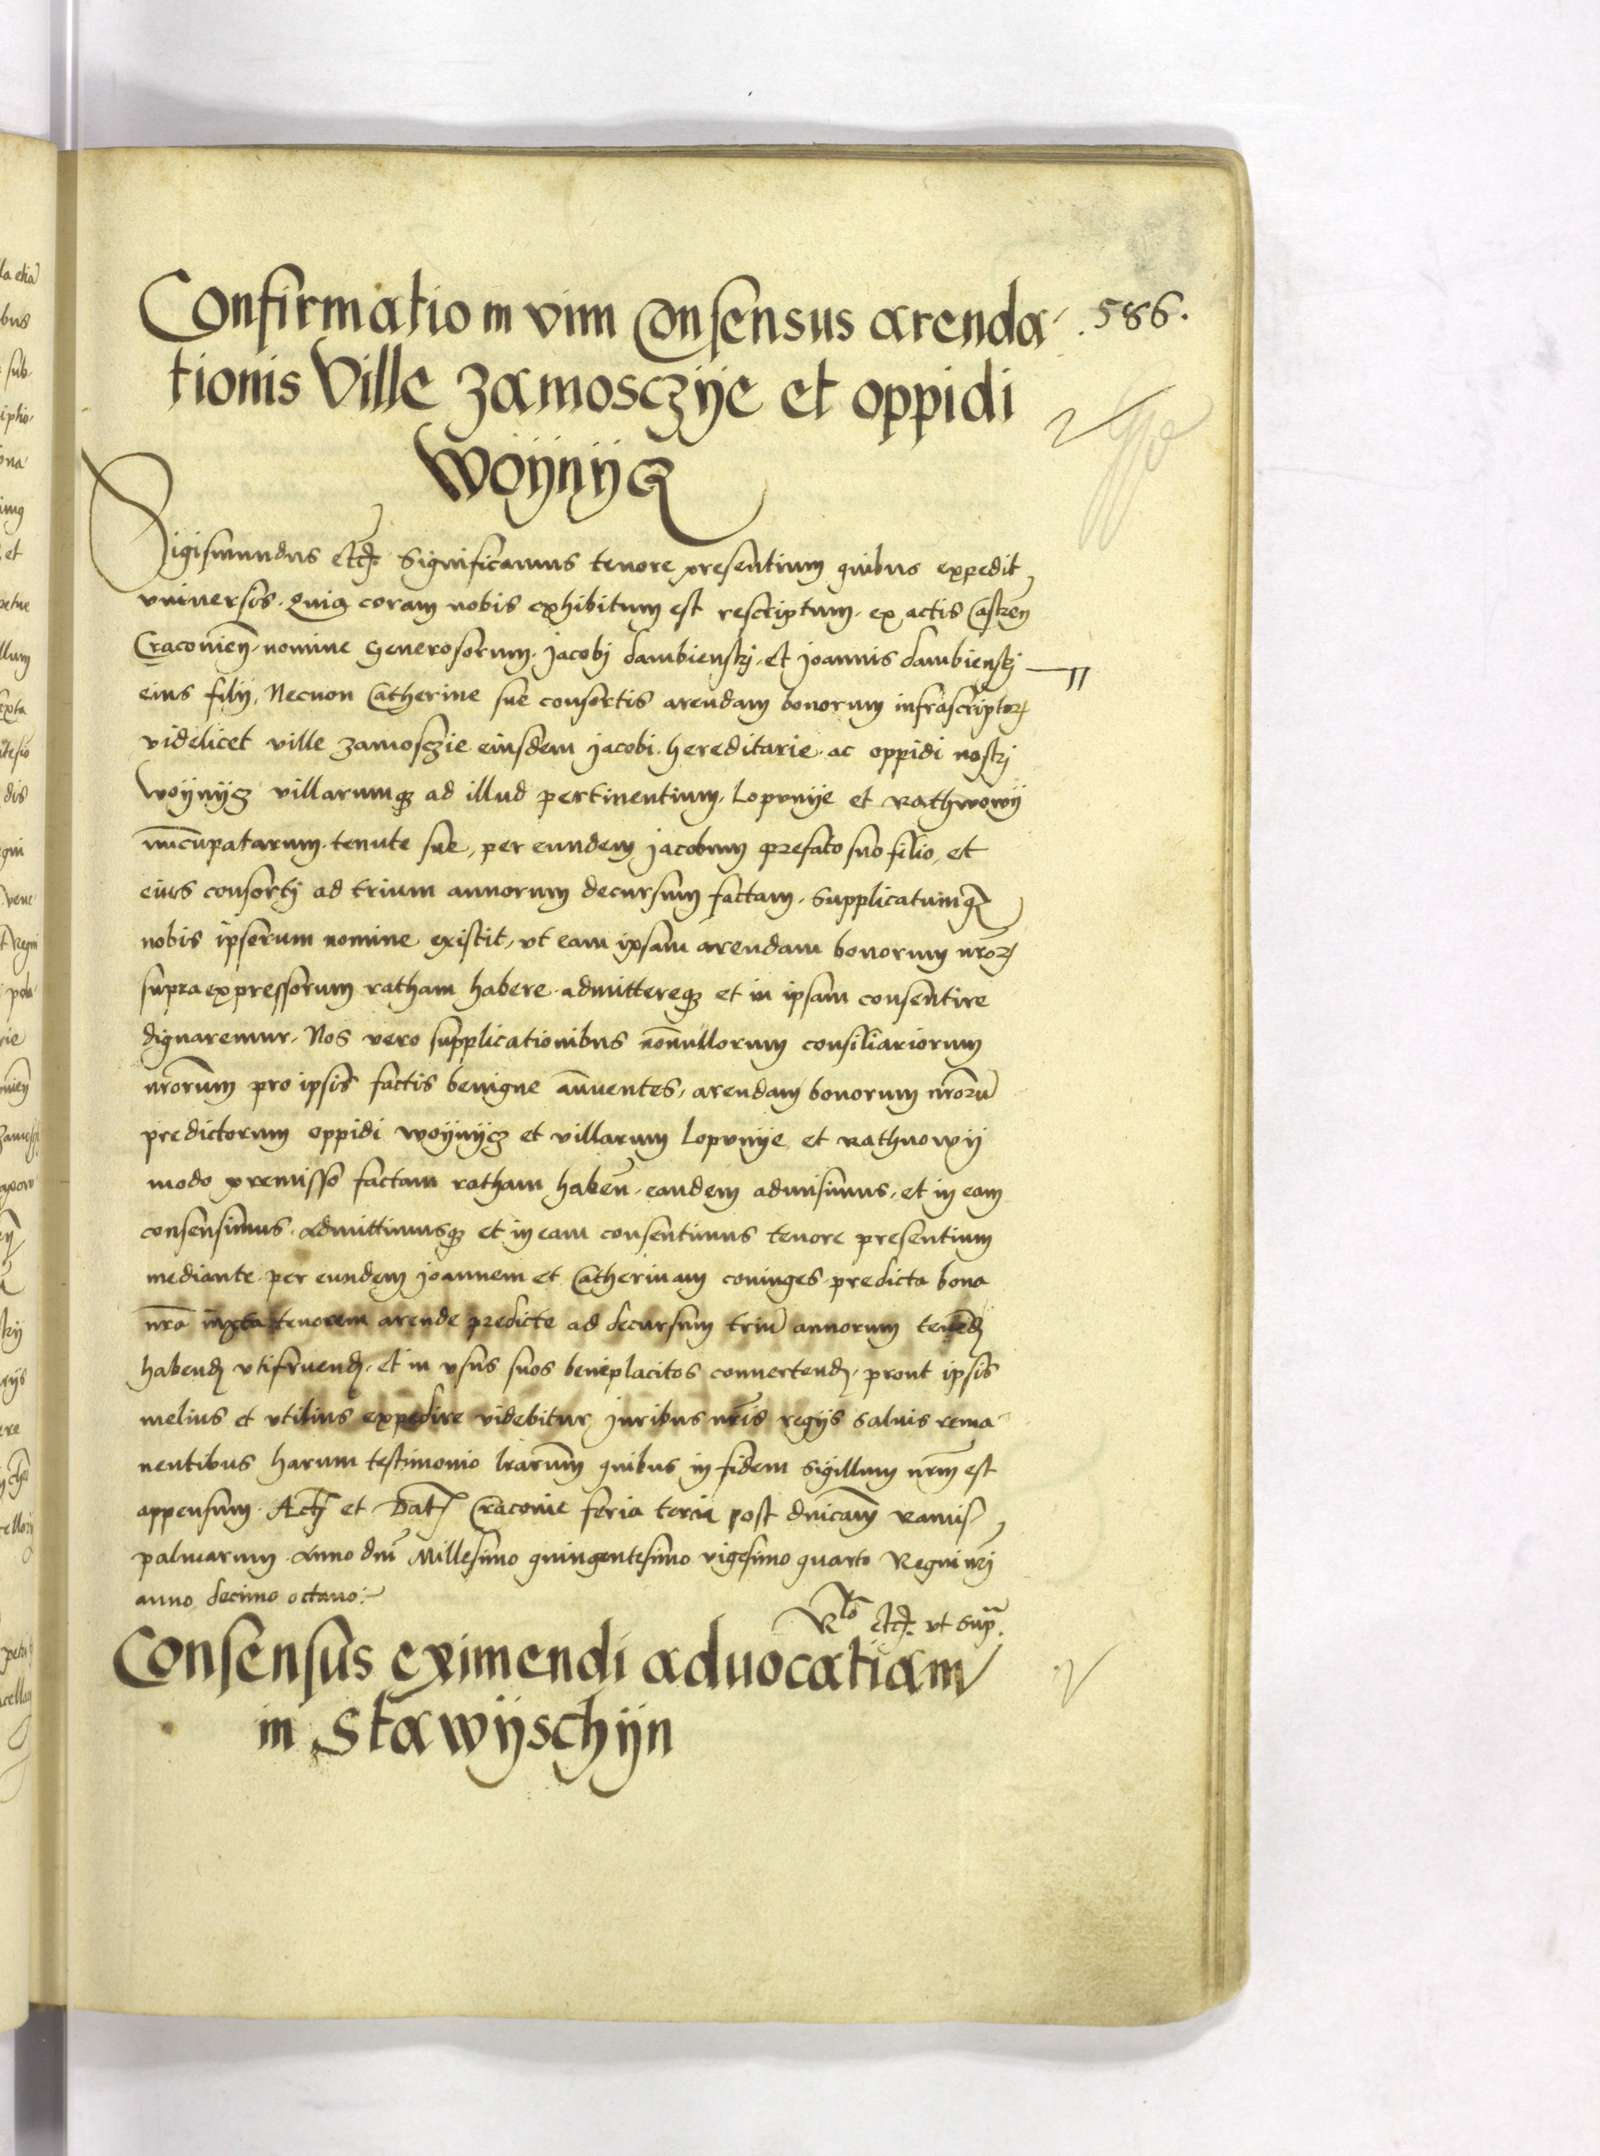 Confirmatio in vim Consensus arenda
.586.
tionis Ville Zamosczÿe et oppidi
Woÿnÿcz
Sigismundus etc. Significamus tenore presentium quibus expedit
vniuersis. Quia coram nobis exhibitum est rescriptum. ex actis Castren
Craconien. nomine Generosorum. Jacobj dambienskj. et Joannis dambienskj
eius filij, Necnon Catherine sue consortis arendam bonorum infrascriptor
videlicet ville zamosczie eiusdem Jacobi. hereditarie. ac oppidi nostrj
Woÿnÿcz villarumq ad illud pertinentium, Lopunÿe et Rathnowÿ
nuncupatarum. tenute sue, per eundem Jacobum prefato suo filio, et
eius consortj ad trium annorum decursum factam. Supplicatumq
nobis ipsorum nomine existit, vt eam ipsam arendam bonorum nror
supra expressorum ratham habere. admittereq et in ipsam consentire
dignaremur. Nos vero supplicationibus nonnullorum consiliariorum
nrorum pro ipsis factis benigne annuentes, arendam bonorum nroru
predictorum oppidi woÿnÿcz et villarum Lopunÿe et Rathnowÿ
modo premisso factam ratham haben. eandem admisimus, et in eam
consensimus. Admittimusq et in eam consentimus tenore presentium
mediante. per eundem Joannem et Catherinam coniuges predicta bona
nra iuxta tenorem arende predicte ad decursum triu annorum tened
habend vtifruend. et in vsus suos beneplacitos conuertend. prout ipsis
melius et vtilius expedire videbitur, Juribus nris regijs saluis rema
nentibus harum testimonio lrarum quibus in fidem Sigillum nrm est
appensum. Act et Dat Craconie feria tercia post dnicam Ramis
palmarum Anno dni Millesimo quingentesimo vigesimo quarto Regni nri
anno decimo octauo.
Rlo etc. vt supra.
Consensus eximendi aduocatiam
in Stawÿschÿn